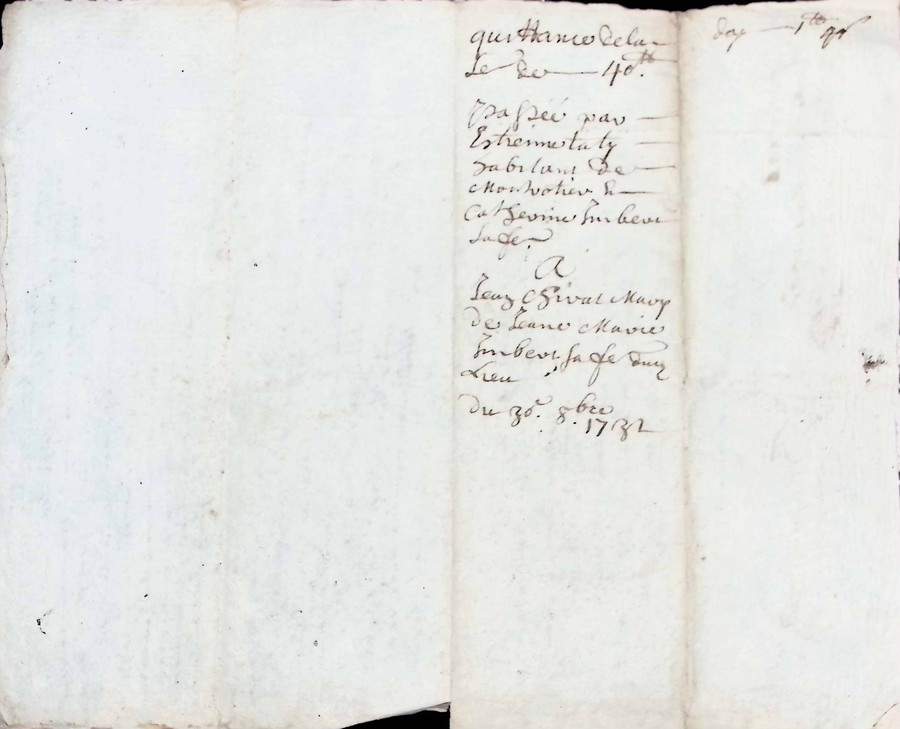 quittance dela
Le de 40.tt
passée par
Estienne taly
habitant de
Catherine Imbert
sa fe
A
Jean Chivat Mary
de Jeane Marie
Imbert sa fe dud
Lieu
du 30.e 8.bre
1732
1tt